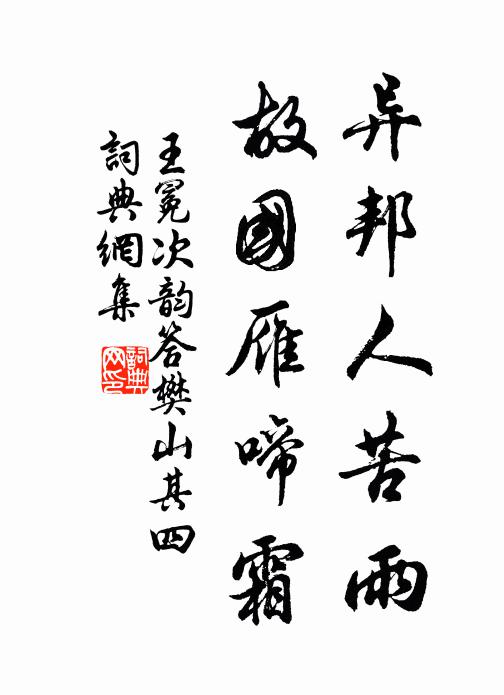 异邦人苦雨
故國雁啼霜
王冕次韵答樊山其四
詞典網集
詞典網印